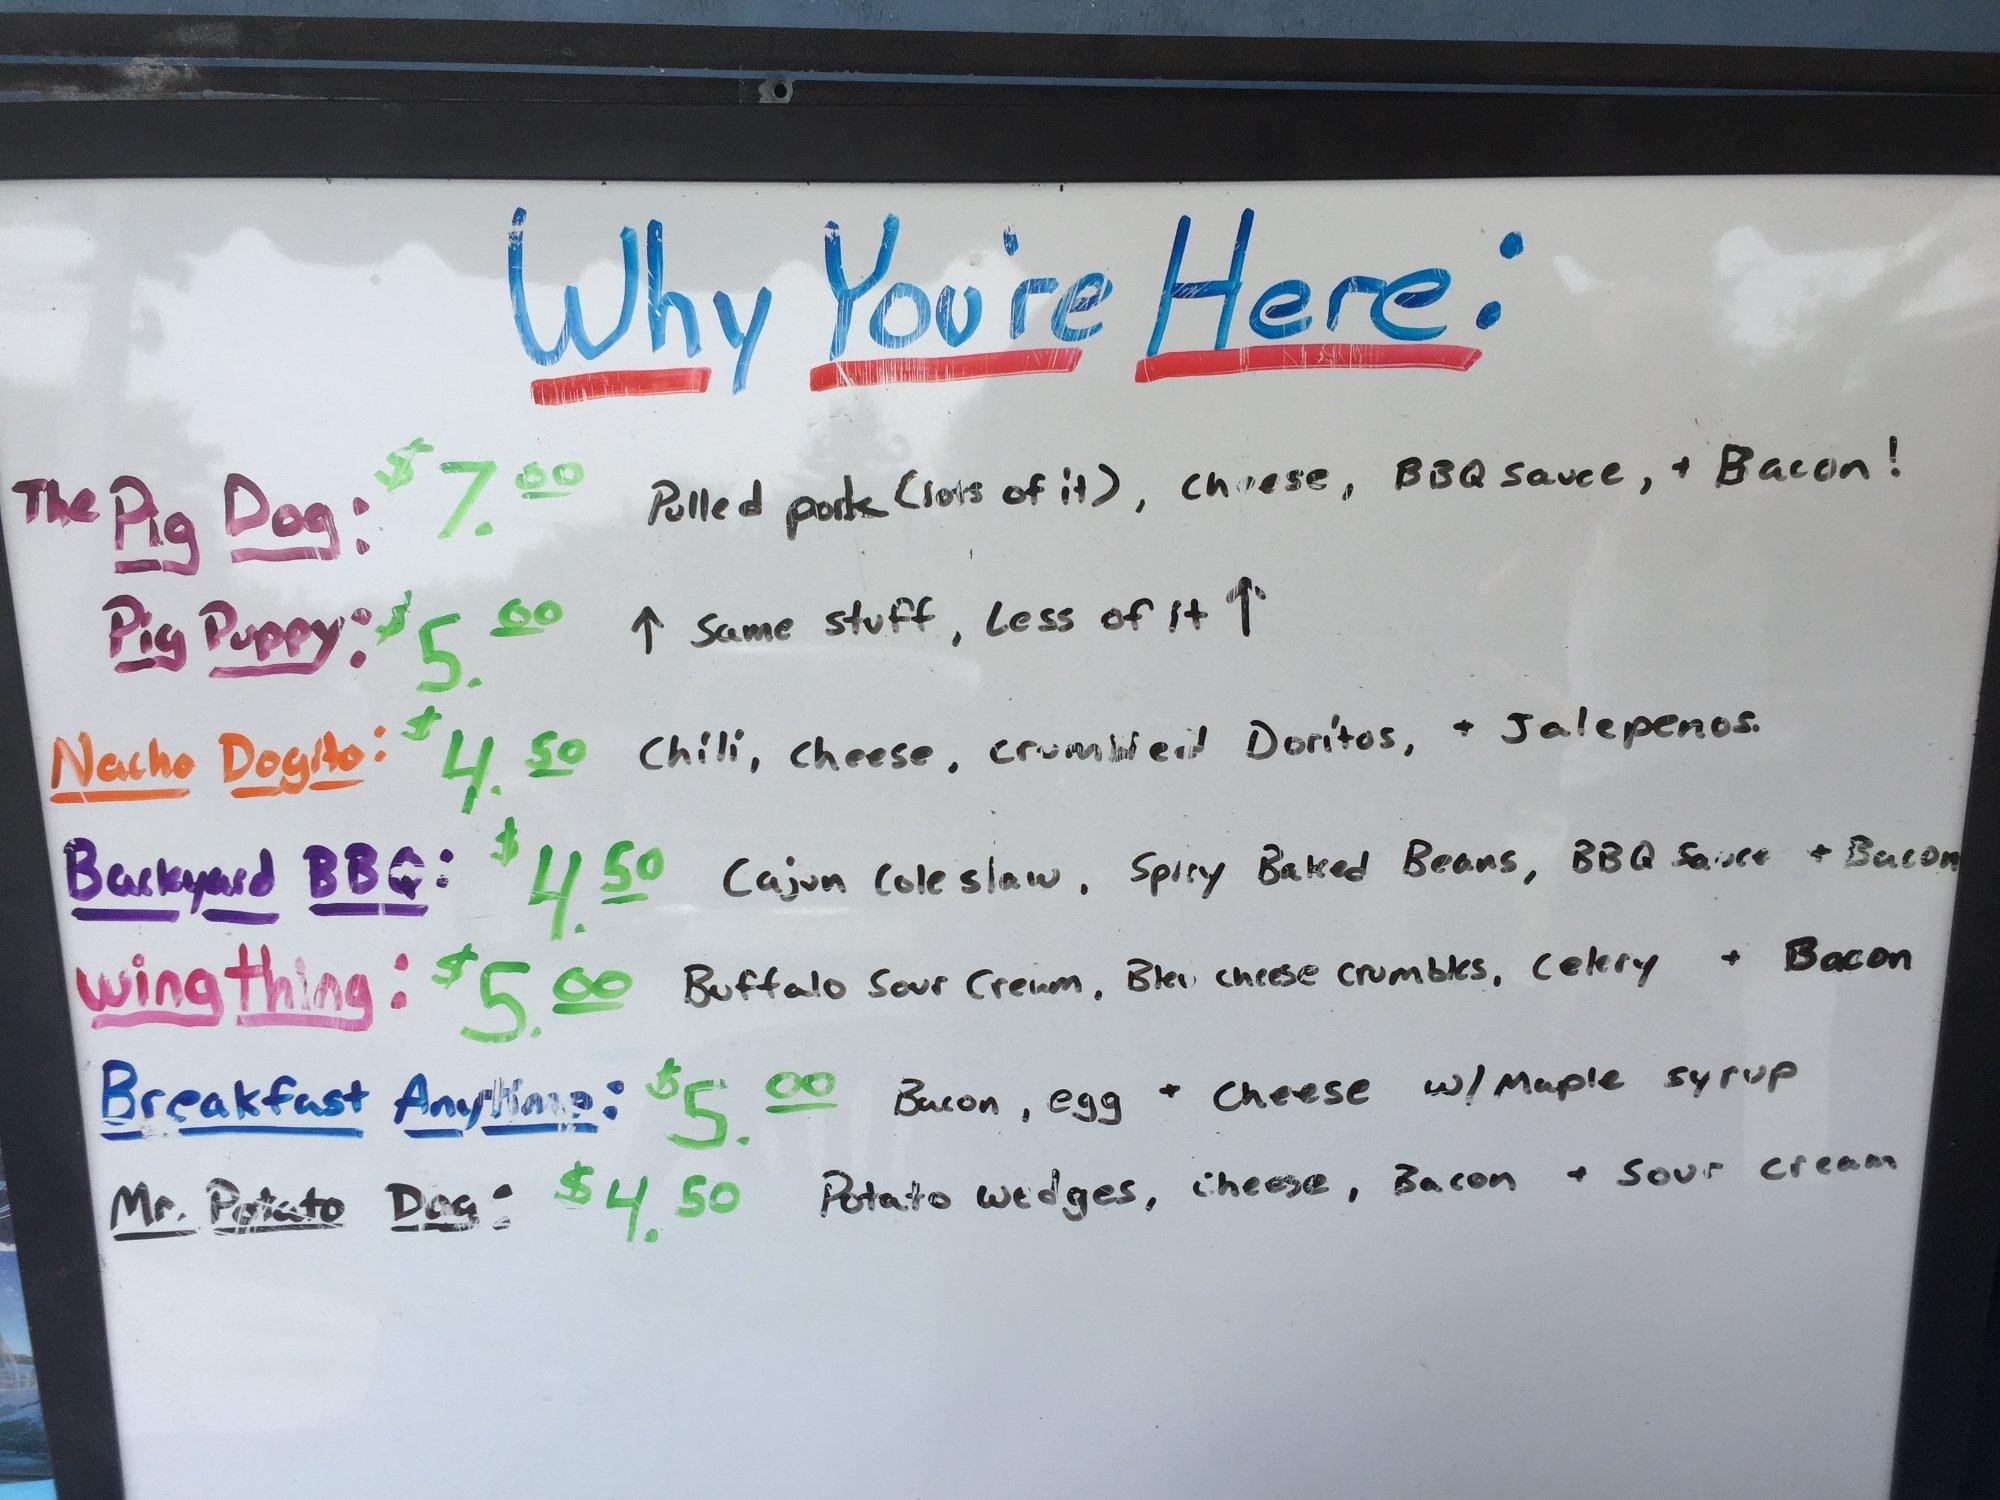 Why You're Here:
The Pig Dog: $7.00 Pulled pork (lots of it), cheese, BBQ sauce, + Bacon!
Pig Puppy: $5.00 ↑ Same stuff, Less of it ↑
Nacho Dogito: $4.50 Chili, cheese, crumbled Doritos, + Jalepenos.
Backyard BBQ: $4.50 Cajun Coleslaw, Spicy Baked Beans, BBQ Sauce + Bacon
wing thing: $5.00 Buffalo Sour Cream, Bleu cheese crumbles, celery + Bacon
Breakfast Anytime: $5.00 Bacon, egg + Cheese w/ Maple syrup
Mr. Potato Dog: $4.50 Potato wedges, cheese, Bacon + Sour cream